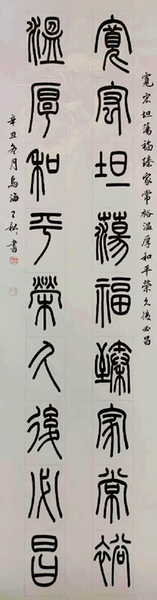 寬宏坦蕩福臻家常裕溫厚和平榮久後必昌
寬宏坦蕩福臻家常裕
溫厚和平榮久後必昌
辛丑冬月烏海書